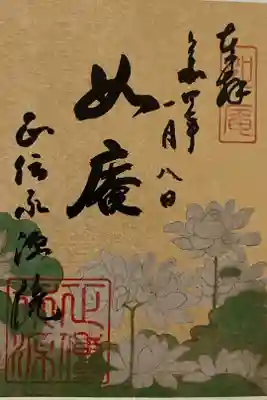 奉拝
令和四年
一月八日
如庵
正伝永源院
如庵
正傳永源